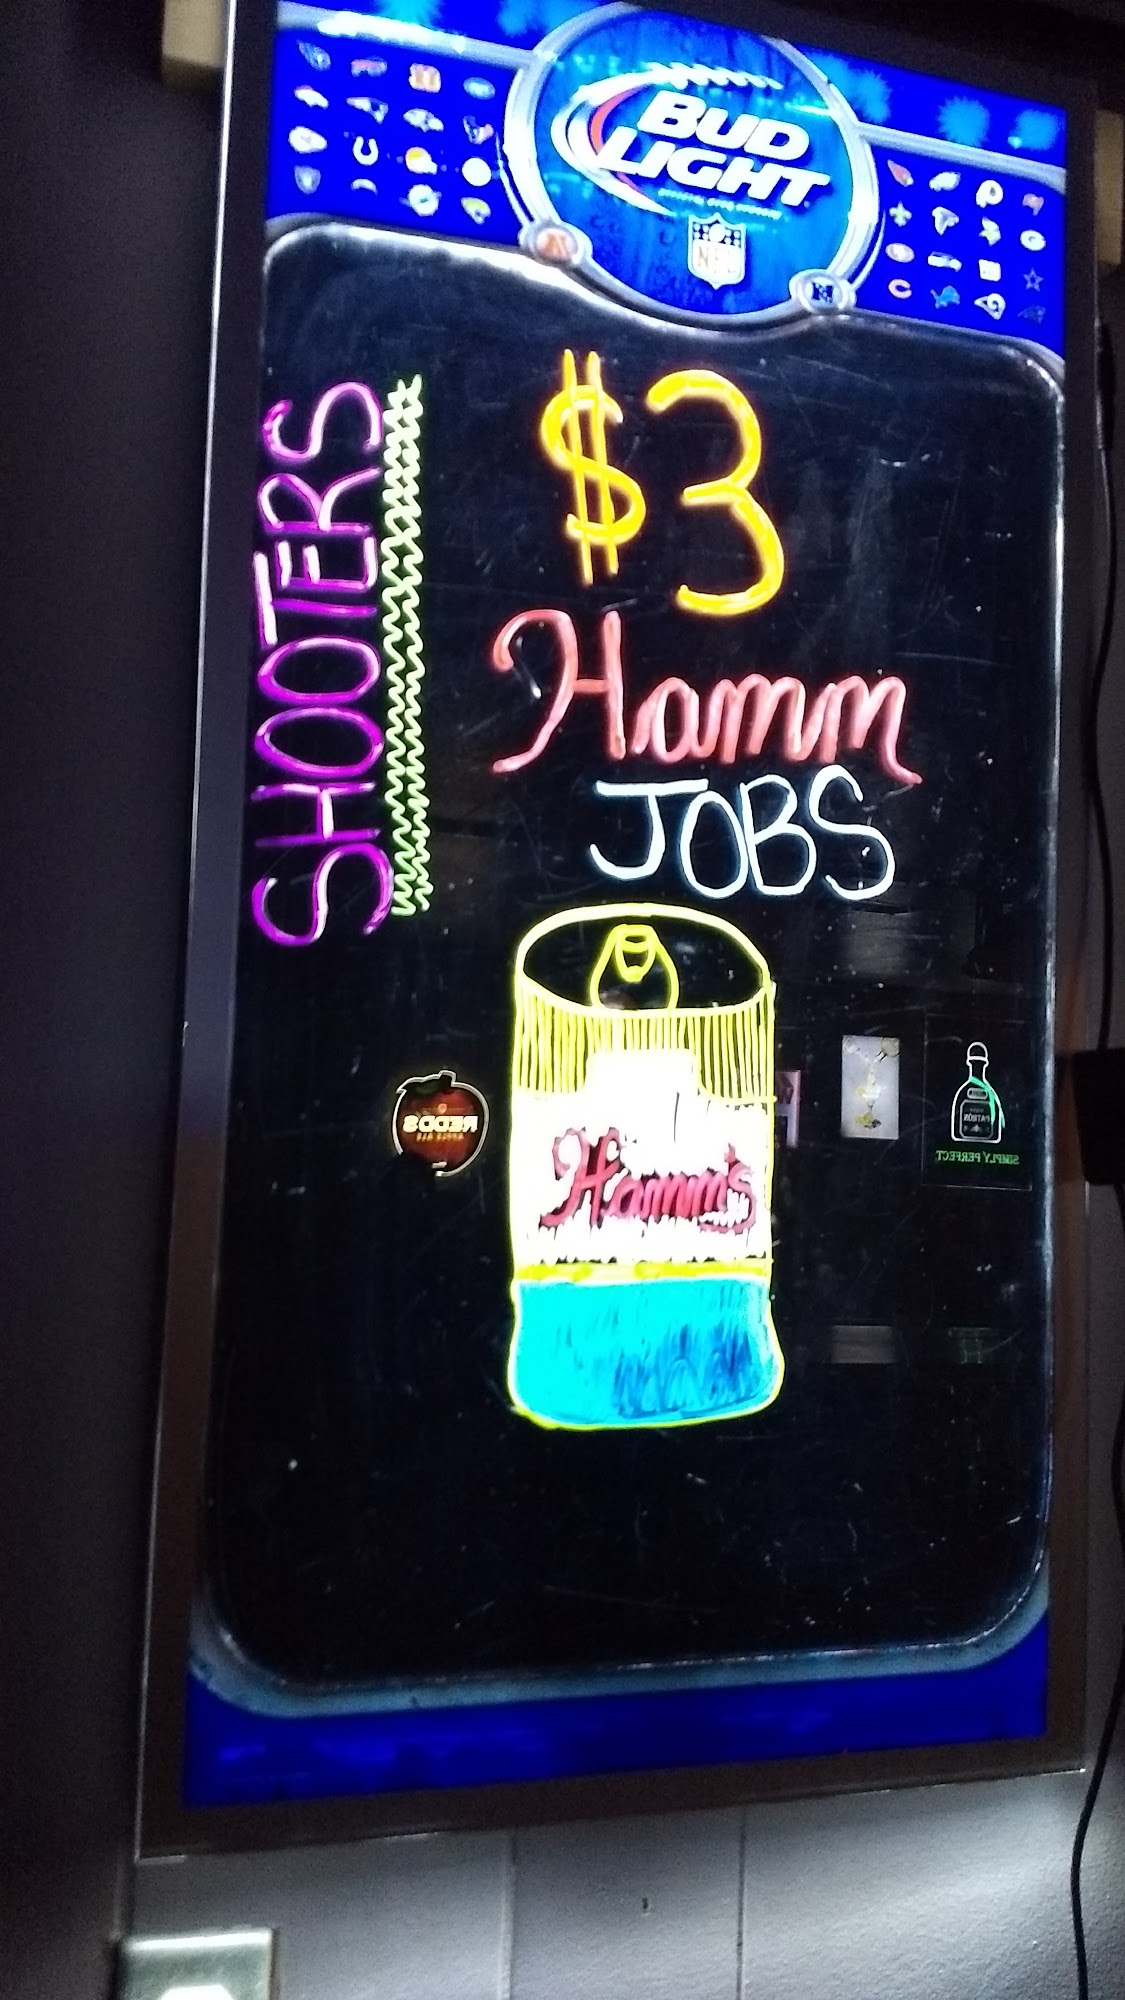 BUD
LIGHT
NFL
SHOOTERS
$3
Hamm
JOBS
Hamm's
REDD'S
PATRÓN
SIMPLY PERFECT